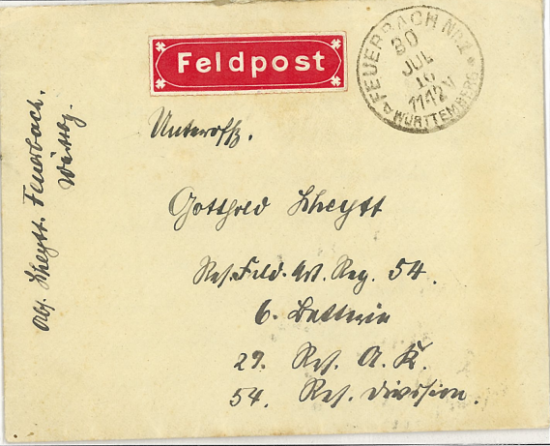 Feldpost
FEUERBACH No. 2
30
JUL
16
11-12 V
WÜRTTEMBERG
Unteroffz.
Gotthold Scheytt
Res. Feld. Art. Reg. 54.
6. Batterie
27. Res. A. K.
54. Res. Division.
Abs. Scheytt. Feuerbach.
Württbg.